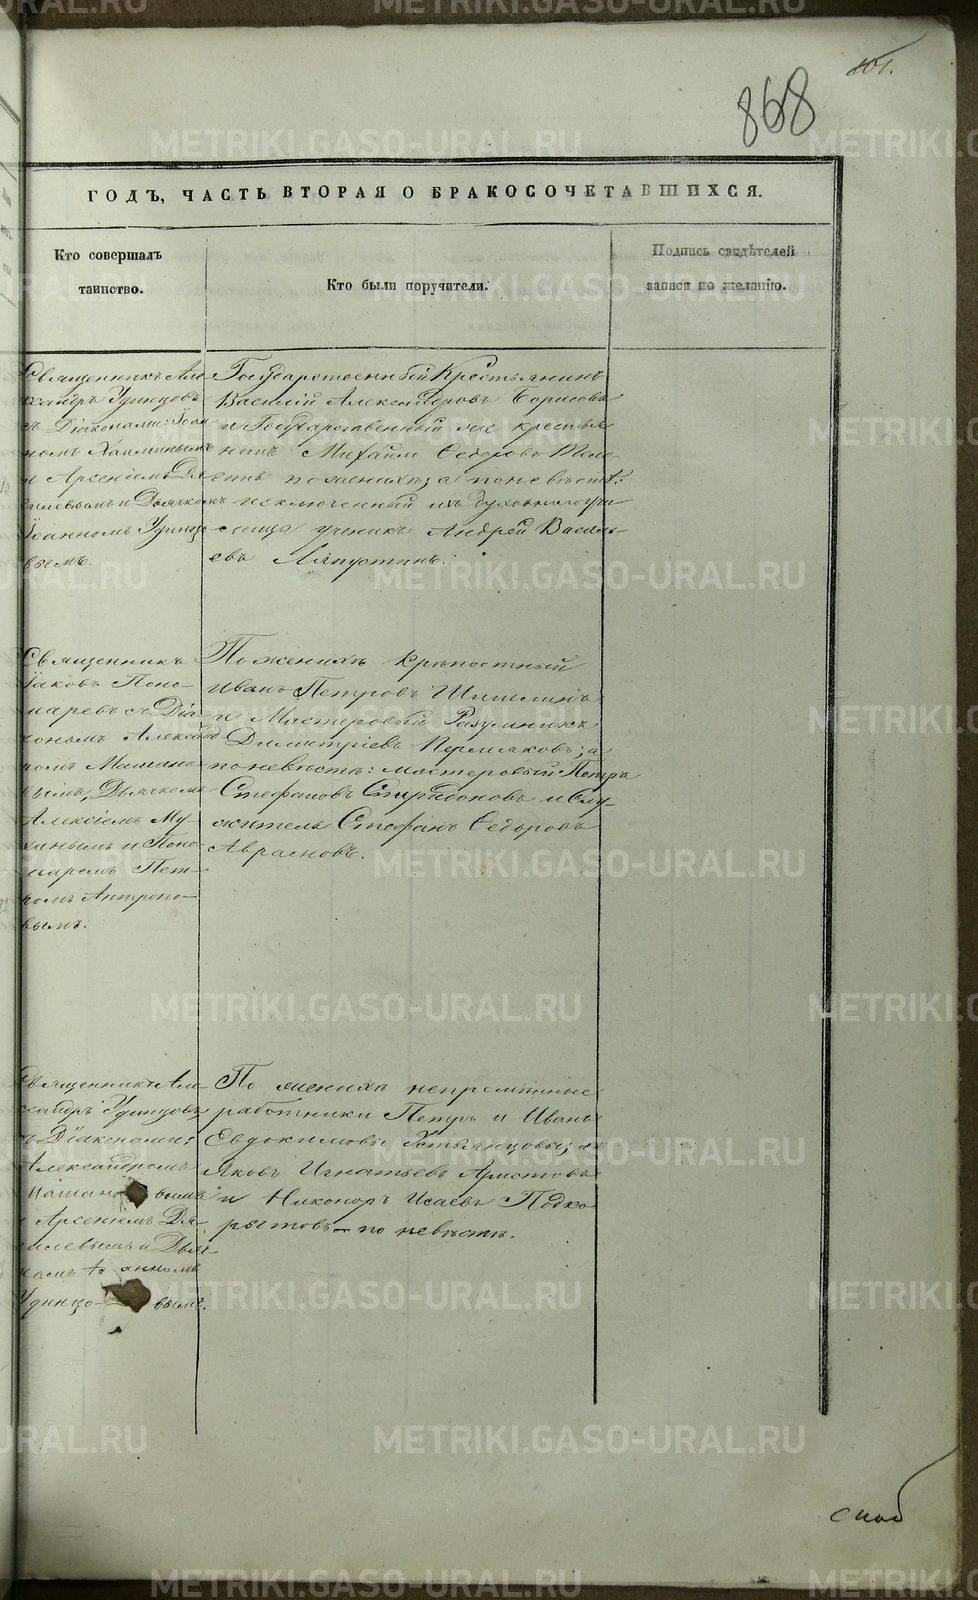 101.
868
ГОДЪ, ЧАСТЬ ВТОРАЯ О БРАКОСОЧЕТАВШИХСЯ.
Кто совершалъ
таинство.
Кто были поручители.
Подпись свидѣтелей
записи по желанію.
Священникъ Але-
ксандръ Удинцовъ
съ Діаконами: Іоан
номъ Хаминымъ
и Арсеніемъ Дя-
гилевымъ и Дьячкомъ
Іоанномъ Удинцо
вымъ.
Государственный Крестьянинъ
Василій Александровъ Борисовъ
и Государственный же крестья
нинъ Михаилъ Ѳедоровъ
по женихѣ; а по невѣстѣ:
исключенный изъ духовнаго учи
лища ученикъ Андрей Василь-
евъ Ляпустинъ.
Священникъ
Іаковъ Поно-
маревъ съ Діа
кономъ Александ
ромъ
вымъ, Дьячкомъ
Алексіемъ Му-
хинымъ и Поно-
маремъ Пет-
ромъ Антроно-
вымъ.
По женихѣ Крѣпостный
Иванъ Петровъ Шишкинъ
и Мастеровый Разумникъ
Димитріевъ Пермяковъ; а
по невѣстѣ: мастеровый Петръ
Стефановъ Спиридоновъ и Слу-
житель Стефанъ Ѳедоровъ
Аврасновъ.
Священникъ Але-
ксандръ Удинцовъ
съ Діаконами:
Александромъ
вымъ
и Арсеніемъ Дя-
гилевымъ и Дьяч
комъ Іоанномъ
Удинцо-вымъ.
По женихѣ непремѣнные
работники Петръ и Иванъ
Евдокимовы Устьянцовы; а
Яковъ Игнатьевъ Аристовъ
и Никоноръ Исаевъ Подко
рытовъ – по невѣстѣ.
METRIKI.GASO-URAL.RU